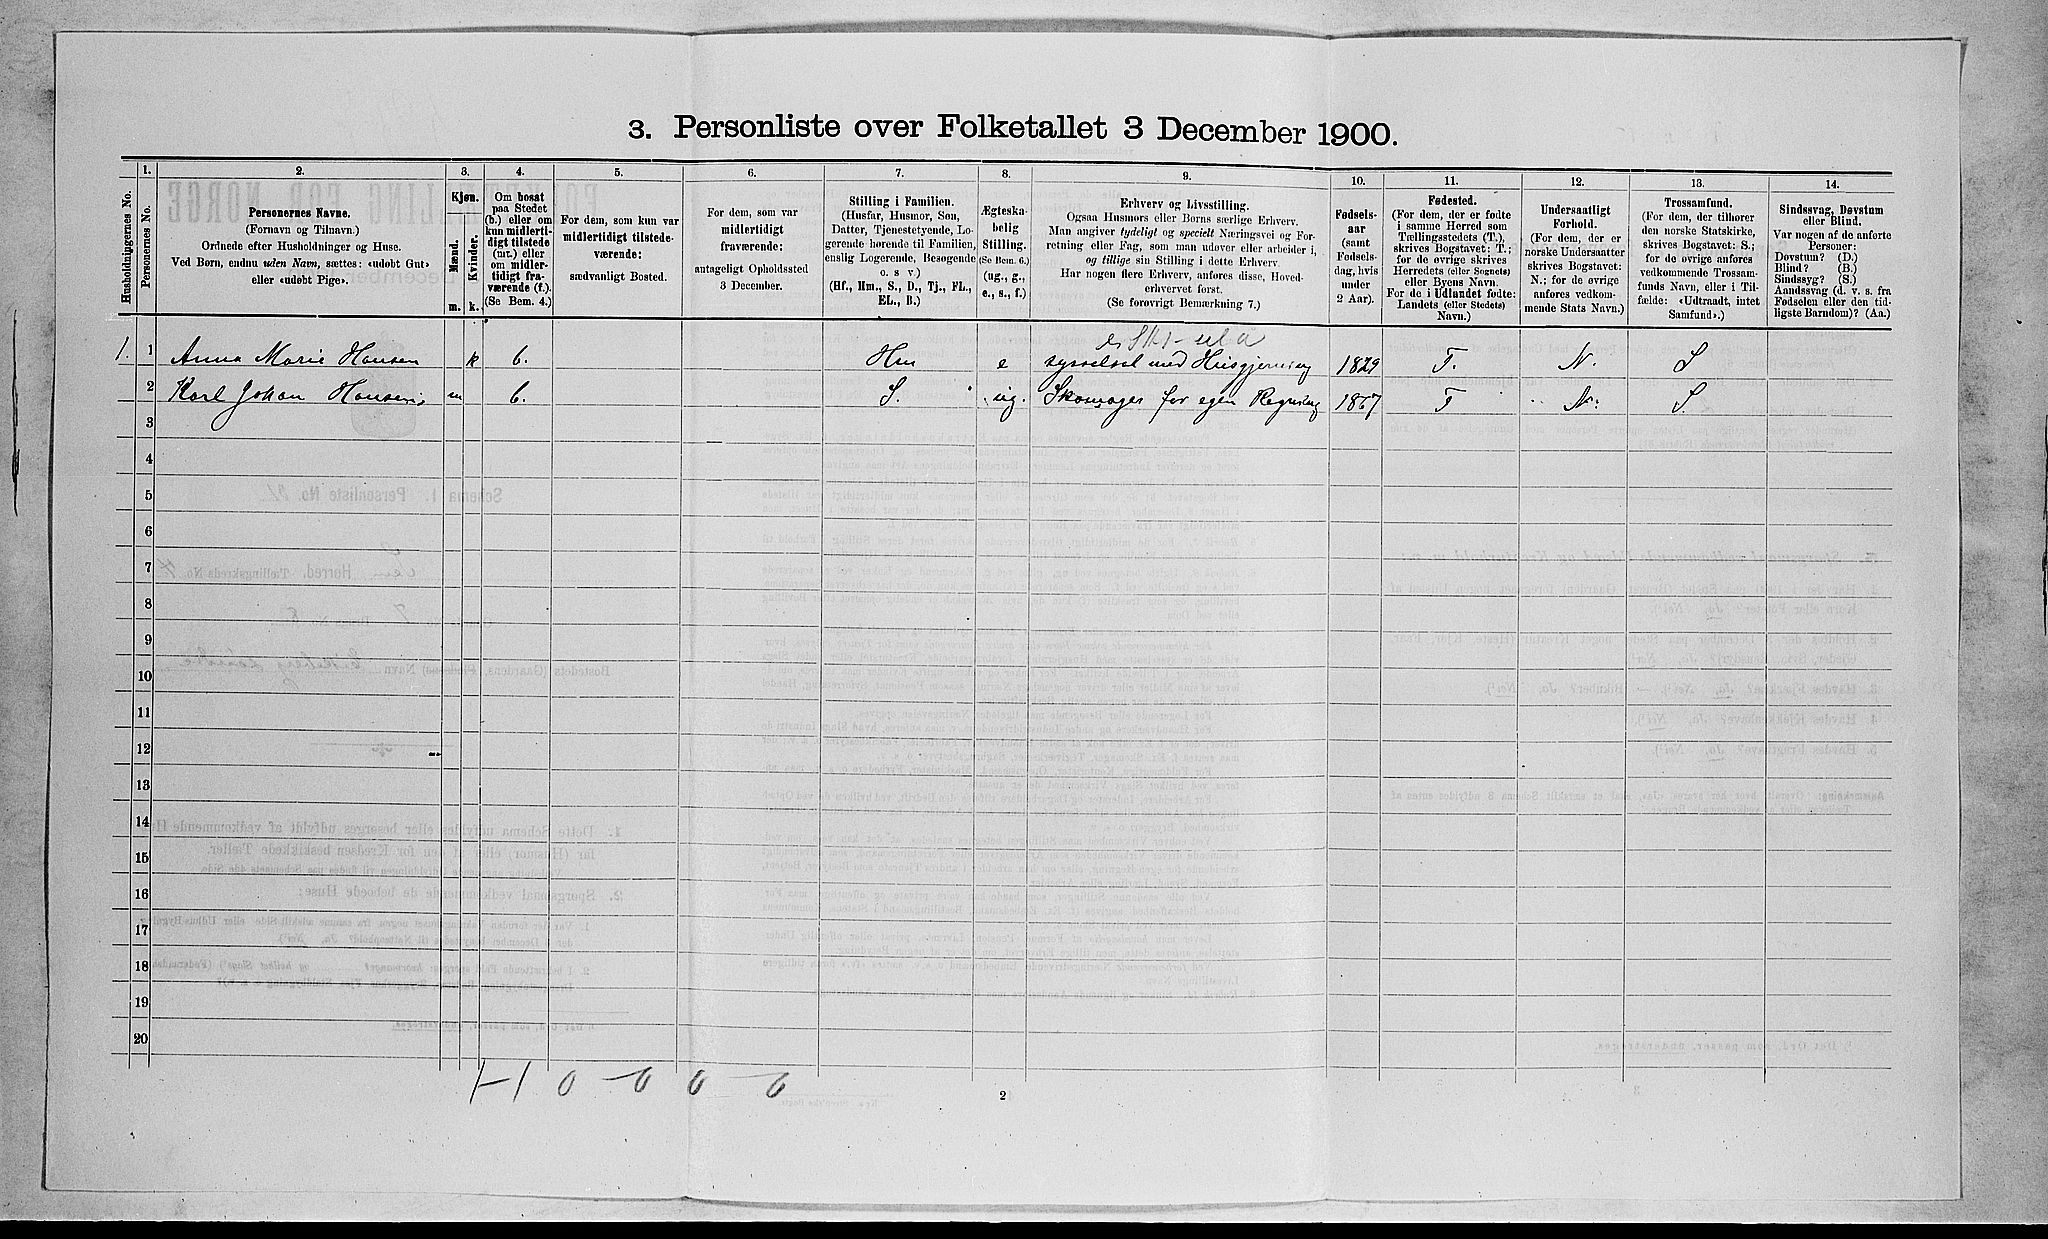 3. Personliste over Folketallet 3 December 1900.
Husholdningernes No.
1.
Personernes No.
2.
Personernes Navne.
(Fornavn og Tilnavn.)
Ordnede efter Husholdninger og Huse.
Ved Børn, endnu uden Navn, sættes: «udøbt Gut»
eller «udøbt Pige».
3.
Kjøn.
Mænd.
Kvinder.
m. k.
4.
Om bosat
paa Stedet
(b.) eller om
kun midlerti-
digt tilstede
(mt.) eller
om midler-
tidigt fra-
værende (f.).
(Se Bem. 4.)
5.
For dem, som kun var
midlertidigt tilstede-
værende:
sædvanligt Bosted.
6.
For dem, som var
midlertidigt
fraværende:
antageligt Opholdssted
3 December.
7.
Stilling i Familien.
(Husfar, Husmor, Søn,
Datter, Tjenestetyende, Lo-
gerende hørende til Familien,
enslig Logerende, Besøgende
o. s v.)
(Hf., Hm., S., D., Tj., FL.,
EL., B.)
8.
Ægteska-
belig
Stilling.
(Se Bem. 6.)
(ug., g.,
e., s., f.)
9.
Erhverv og Livsstilling.
Ogsaa Husmors eller Børns særlige Erhverv.
Man angiver tydeligt og specielt Næringsvei og For-
retning eller Fag, som man udøver eller arbeider i,
og tillige sin Stilling i dette Erhverv.
Har nogen flere Erhverv, anføres disse, Hoved-
erhvervet først.
(Se forøvrigt Bemærkning 7.)
10.
Fødsels-
aar
(samt
Fødsels-
dag, hvis
under
2 Aar).
11.
Fødested.
(For dem, der er fødte
i samme Herred som
Tællingsstedets (T.),
skrives Bogstavet: T.;
for de øvrige skrives
Herredets (eller Sognets)
eller Byens Navn.
For de i Udlandet fødte:
Landets (eller Stedets)
Navn.)
12.
Undersaatligt
Forhold.
(For dem, der er
norske Undersaatter
skrives Bogstavet:
N.; for de øvrige
anføres vedkom-
mende Stats Navn.)
13.
Trossamfund.
(For dem, der tilhører
den norske Statskirke,
skrives Bogstavet: S.;
for de øvrige anføres
vedkommende Trossam-
funds Navn, eller i Til-
fælde: «Udtraadt, intet
Samfund».)
14.
Sindssvag, Døvstum
eller Blind.
Var nogen af de anførte
Personer:
Døvstum? (D.)
Blind? (B.)
Sindssyg? (S.)
Aandssvag (d. v. s. fra
Fødselen eller den tid-
ligste Barndom)? (Aa.)
1. 1 Anna Marie Hansen k b. Hm e sysselsat med Husgjerning 1829 T. N. S
2 Karl Johan Hansen m b. S. ug. Skomager for egen Regning 1867 T N. S.
3
4
5
6
7
8
9
10
11
12
13
14
15
16
17
18
19
20
1-1 0-0 0-0
2